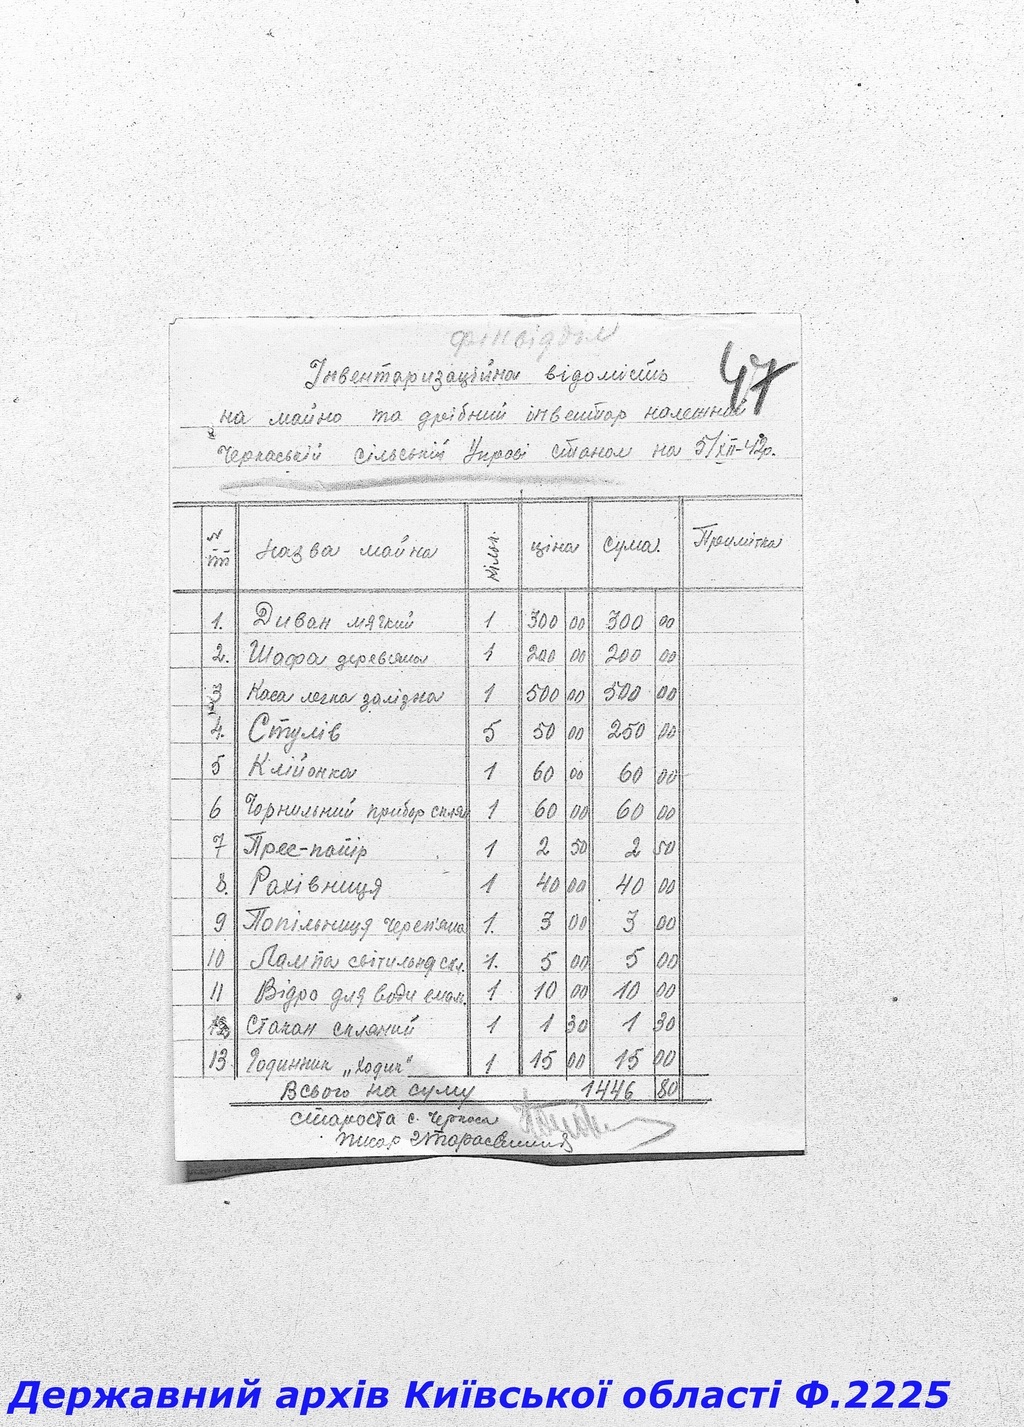 фінвідділ
47
Інвентаризаційна відомість
на майно та дрібний інвентар належний
Черкаській сільській Управі станом на 5/XII-42р.
№ пп Назва майна кільк. ціна сума. Примітка
1. Диван мягкий 1 300 00 300 00
2. Шафа деревяна 1 200 00 200 00
3 Каса легка залізна 1 500 00 500 00
4. Стулів 5 50 00 250 00
5 Клійонка 1 60 00 60 00
6 Чорнильний прибор склян 1 60 00 60 00
7 Прес-папір 1 2 50 2 50
8. Рахівниця 1 40 00 40 00
9 Попільниця череп'яна 1. 3 00 3 00
10 Лампа світильна скл. 1. 5 00 5 00
11 Відро для води емал. 1 10 00 10 00
12 Стакан скляний 1 1 30 1 30
13 Годинник „Ходик" 1 15 00 15 00
Всього на суму 1446 80
Староста с. Черкаса
Писар
Державний архів Київської області Ф.2225